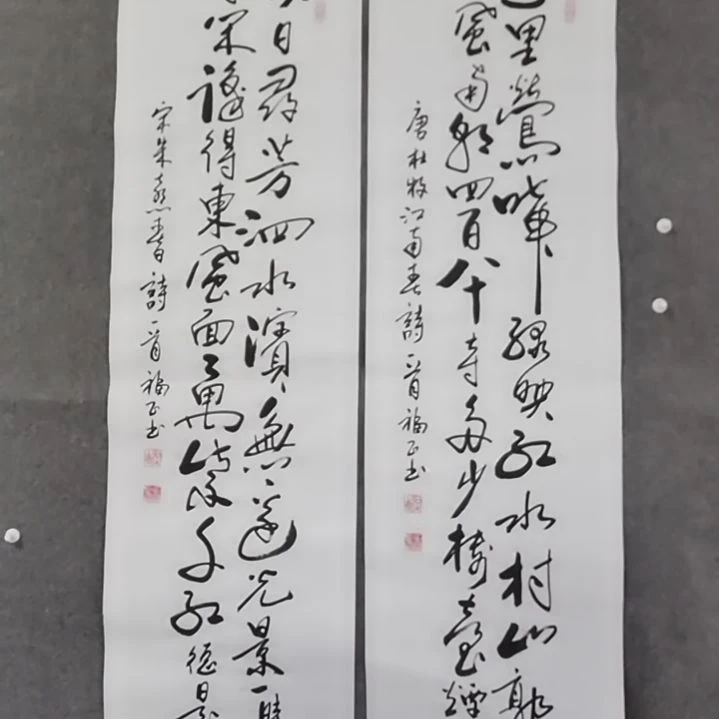 里鶯啼綠映紅水村山郭
風南朝四百八十寺多少樓臺煙
唐杜牧江南春詩一首福正書
日尋芳泗水濱無邊光景一時
閑識得東風面萬紫千紅總是
宋朱熹春日詩一首福正書